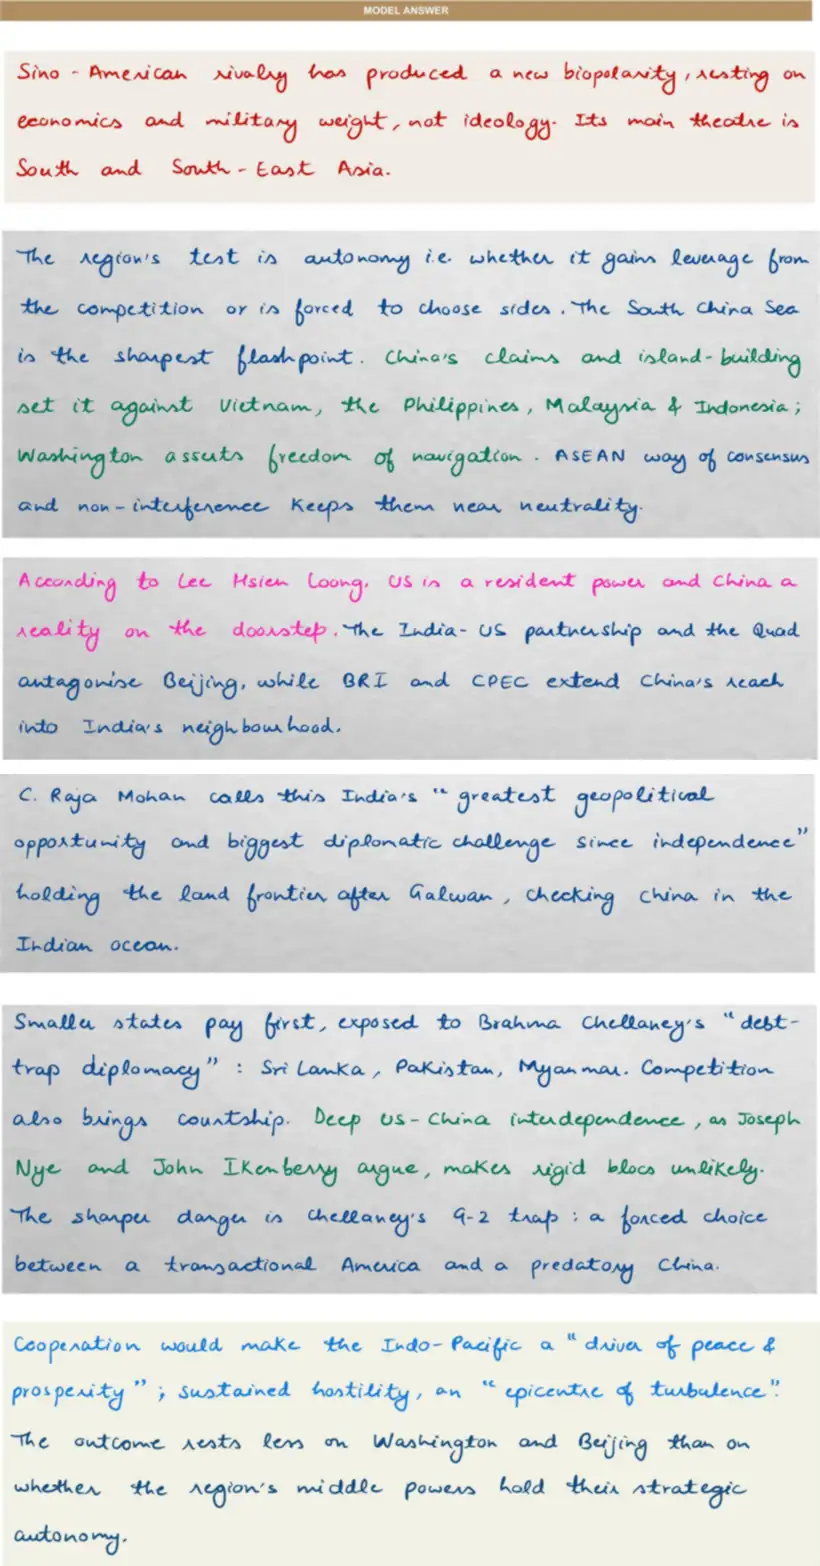 MODEL ANSWER
Sino - American rivalry has produced a new biopolarity, resting on
economics and military weight, not ideology. Its main theatre is
South and South-East Asia.
The region's test is autonomy i.e. whether it gains leverage from
the competition or is forced to choose sides. The South China Sea
is the sharpest flashpoint. China's claims and island-building
set it against Vietnam, the Philippines, Malaysia & Indonesia;
Washington asserts freedom of navigation. ASEAN way of consensus
and non-interference keeps them near neutrality.
According to Lee Hsien Loong, US is a resident power and China a
reality on the doorstep. The India-US partnership and the Quad
antagonise Beijing, while BRI and CPEC extend China's reach
into India's neighbourhood.
C. Raja Mohan calls this India's "greatest geopolitical
opportunity and biggest diplomatic challenge since independence"
holding the land frontier after Galwan, checking China in the
Indian ocean.
Smaller states pay first, exposed to Brahma Chellaney's "debt-
trap diplomacy" : Sri Lanka, Pakistan, Myanmar. Competition
also brings courtship. Deep US-China interdependence, as Joseph
Nye and John Ikenberry argue, makes rigid blocs unlikely.
The sharper danger is Chellaney's G-2 trap : a forced choice
between a transactional America and a predatory China.
Cooperation would make the Indo-Pacific a "driver of peace &
prosperity" ; sustained hostility, an "epicentre of turbulence".
The outcome rests less on Washington and Beijing than on
whether the region's middle powers hold their strategic
autonomy.